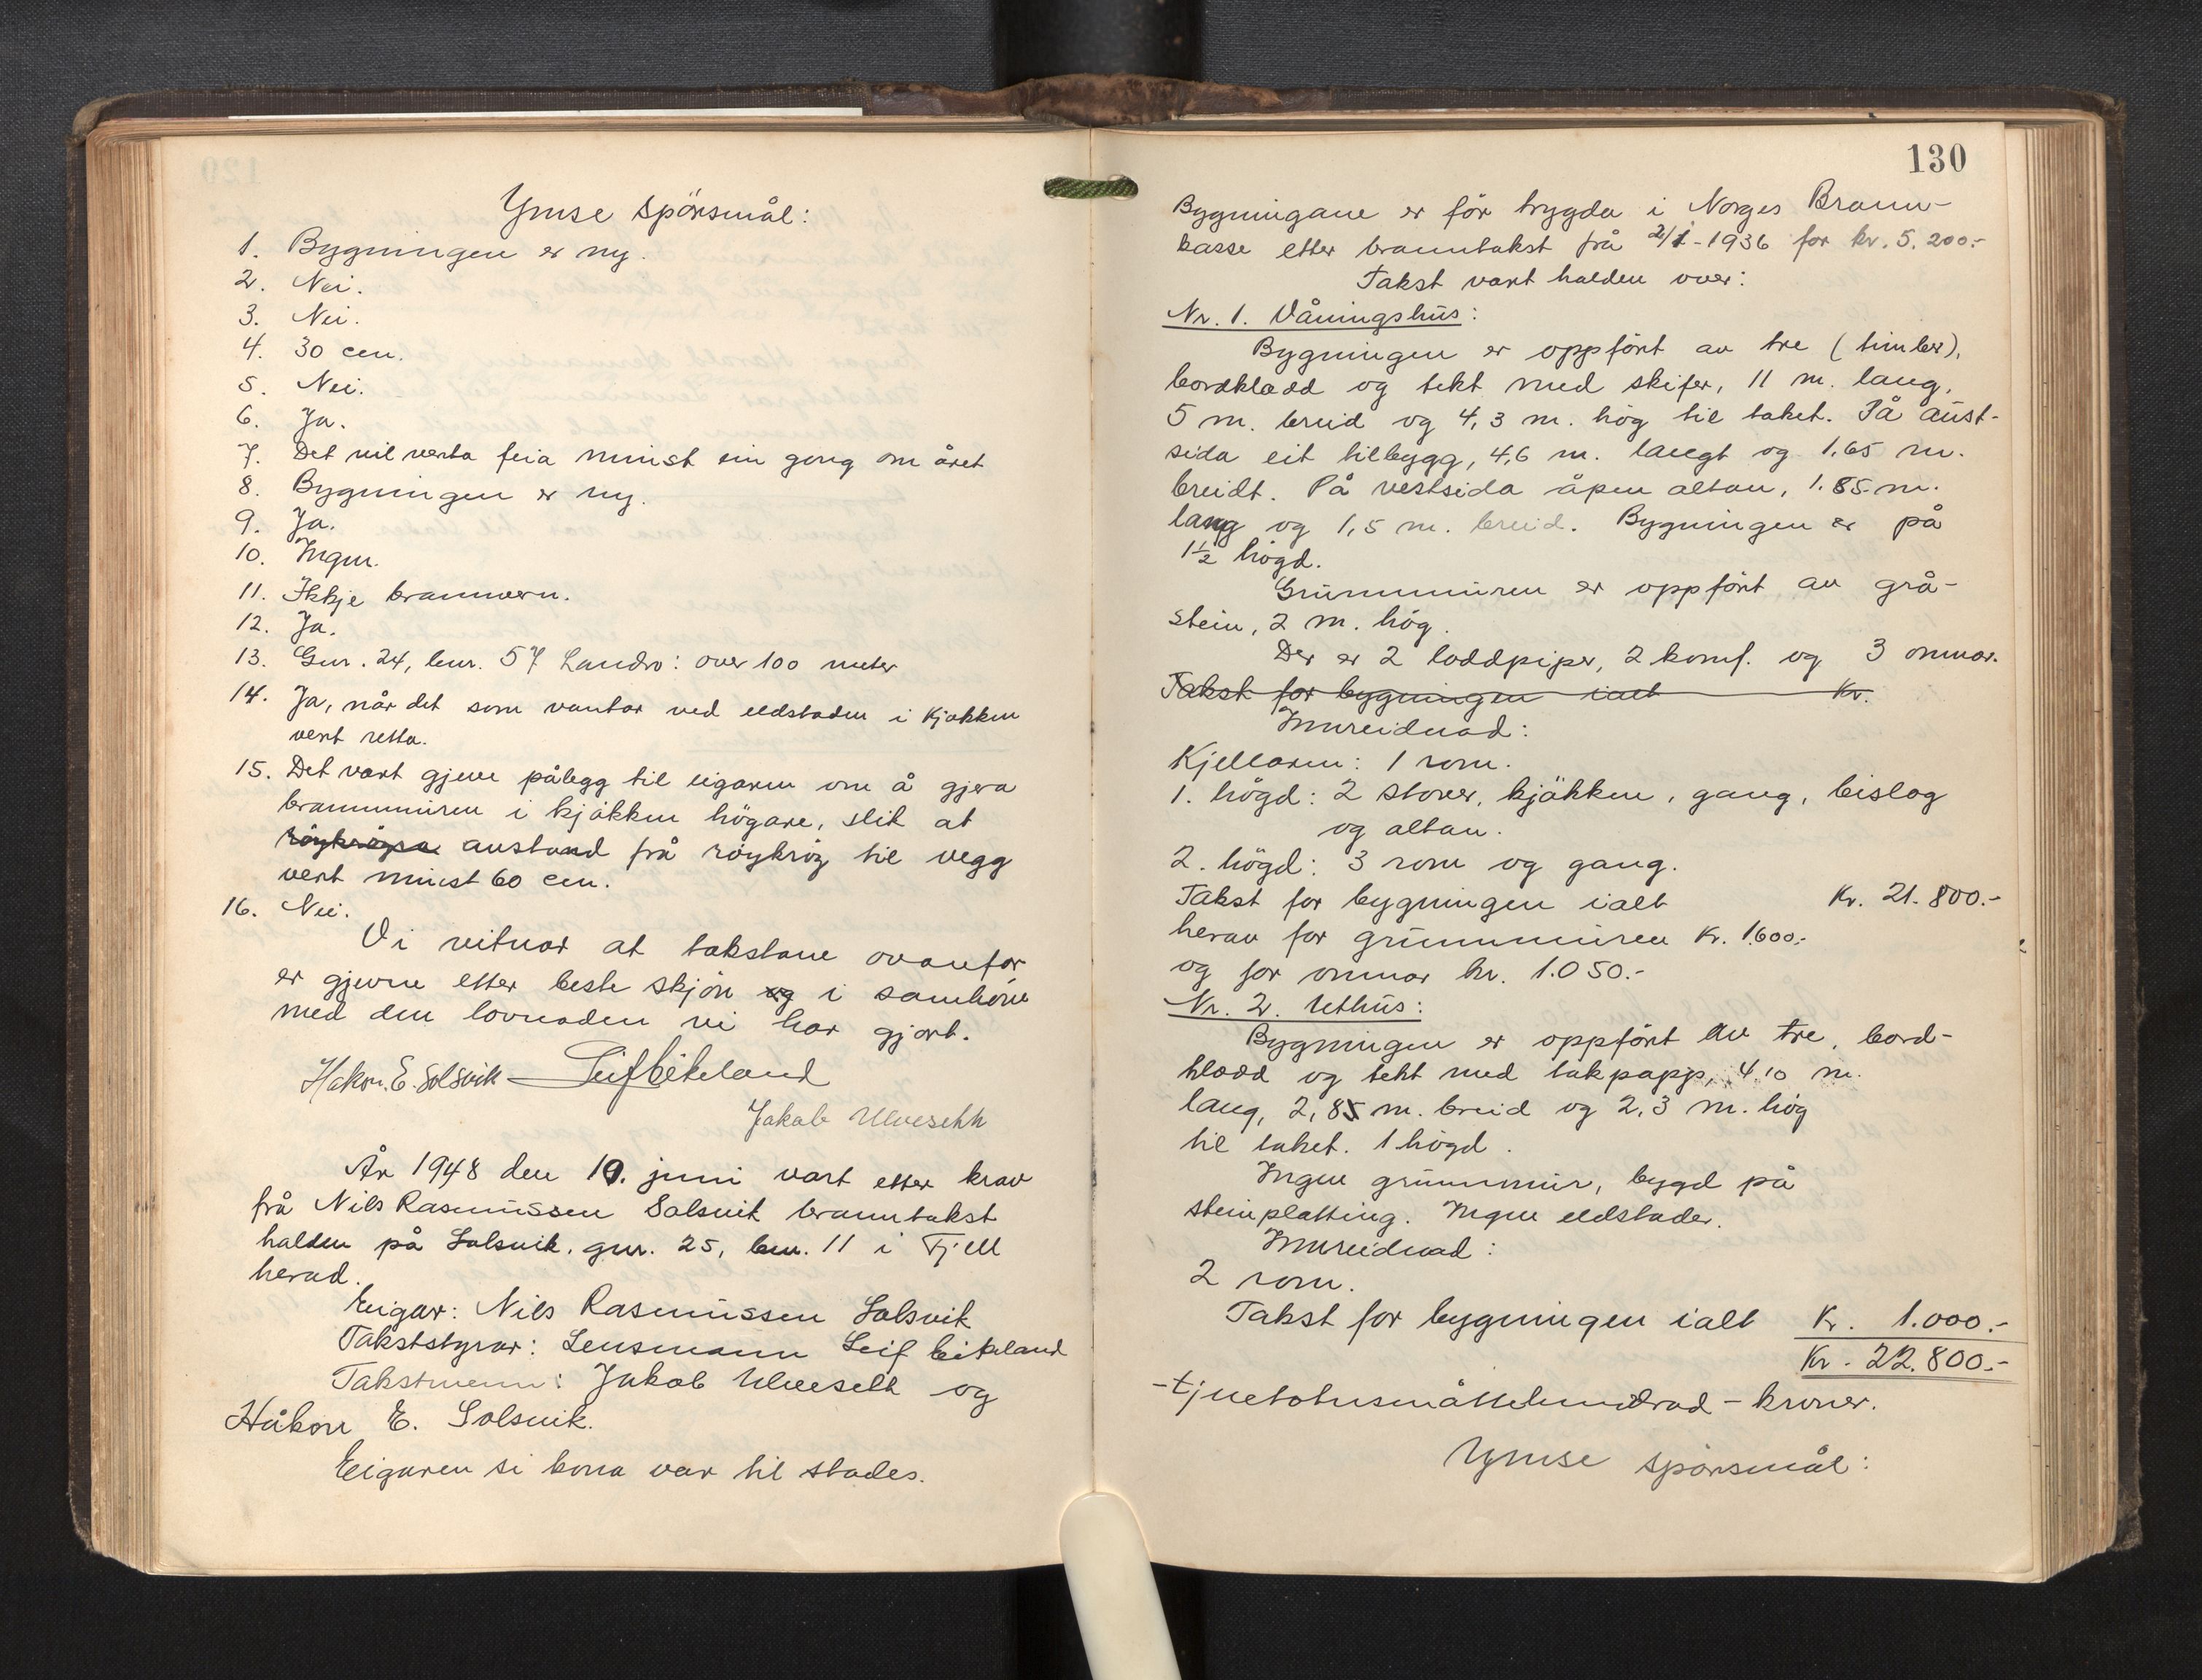 Ymse spörsmål:
1. Bygningen er ny.
2. Nei.
3. Nei.
4. 30 cm.
5. Nei.
6. Ja.
7. Det vil verta feia minst ein gong om året
8. Bygningen er ny.
9. Ja.
10. Ingen.
11. Ikkje brannvern.
12. Ja.
13. Gnr. 24, bnr. 57 Landro: over 100 meter
14. Ja, når det som vantar ved eldstaden i kjøkken
vert retta.
15. Det vart gjeve pålegg til eigaren om å gjera
brannmuren i kjökken högare, slik at
avstand frå röykrör til vegg
vert minst 60 cm.
16. Nei.
Vi vitnar at takstane ovanfor
er gjevne etter beste skjön og i samhöve
med den lovnaden vi har gjort.
Håkon. E. Solsvik Leif Eikeland
Jakob Ulveseth
År 1948 den 10. juni vart etter krav
frå Nils Rasmussen Solsvik branntakst
halden på Solsvik, gnr. 25, bnr. 11 i Fjell
herad.
Eigar: Nils Rasmussen Solsvik
Takststyrar: Lensmann Leif Eikeland
Takstmenn: Jakob Ulveseth og
Håkon E. Solsvik.
Eigaren si kona var til stades.
130
Bygningane er för trygda i Norges Brann-
kasse etter branntakst frå 2/1-1936 for kr. 5.200.-
Takst vart halden over:
Nr. 1. Våningshus:
Bygningen er oppfört av tre (timber),
bordkledd og tekt med skifer, 11 m. lang,
5 m. breid og 4,3 m. hög til taket. På aust-
sida eit tilbygg, 4,6 m. langt og 1,65 m.
breidt. På vestsida åpen altan, 1.85 m.
lang og 1,5 m. breid. Bygningen er på
1½ högd.
Grunnmuren er oppfört av grå-
stein, 2 m. hög.
Der er 2 loddpiper, 2 komf. og 3 omnar.
Takst for bygningen ialt Kr.
Innreidnad:
Kjellaren: 1 rom.
1. högd: 2 stover, kjökken, gang, bislag
og altan.
2. högd: 3 rom og gang.
Takst for bygningen ialt Kr. 21.800.-
herav for grunnmuren Kr. 1600.-
og for omnar kr. 1.050.-
Nr. 2. Uthus:
Bygningen er oppfört av tre, bord-
kledd og tekt med takpapp, 4,10 m.
lang, 2,85 m. breid og 2,3 m. hög
til taket. 1 högd.
Ingen grunnmur, bygd på
steinplatting. Ingen eldstader.
Innreidnad:
2 rom.
Takst for bygningen ialt Kr. 1.000.-
Kr. 22.800.-
-tjuetotusenåttehundrad - kroner.
Ymse spörsmål: